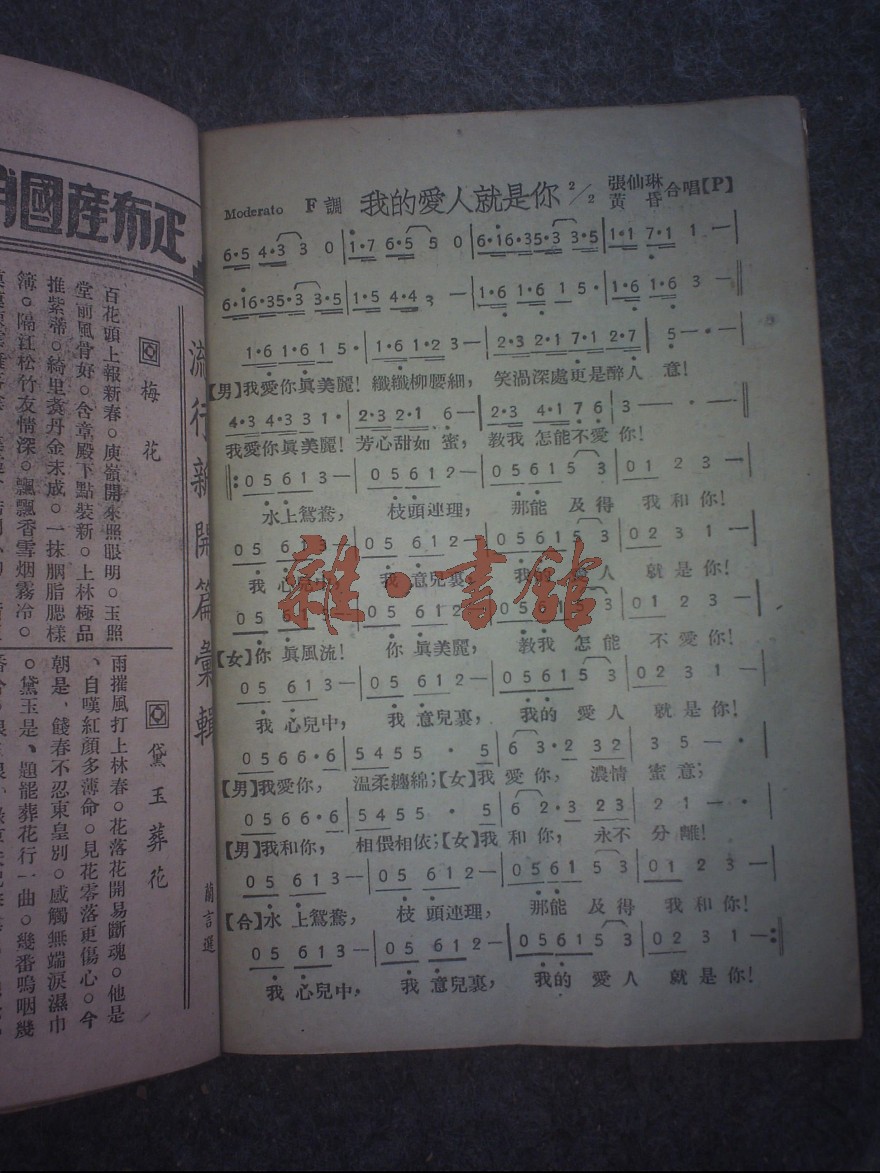 Moderato F調 我的愛人就是你 2/2 張仙琳 黃昏 合唱【P】
6·5 4·3 3 0 | 1·7 6·5 5 0 | 6·16·35·3 3·5 | 1·1 7·1 1 — |
6·16·35·3 3·5 | 1·5 4·4 3 — | 1·6 1·6 1 5· | 1·6 1·6 3 — ‖
1·6 1·6 1 5· | 1·6 1·2 3 — | 2·3 2·1 7·1 2·7 | 5 — · — |
【男】我愛你眞美麗！纖纖柳腰細，笑渦深處更是醉人意！
4·3 4·3 3 1· | 2·3 2·1 6 — | 2·3 4·1 7 6 | 3 — · — ‖
我愛你眞美麗！芳心甜如蜜，敎我怎能不愛你！
‖: 0 5 6 1 3 — | 0 5 6 1 2 — | 0 5 6 1 5 3 | 0 1 2 3 — |
水上鴛鴦，枝頭連理，那能及得我和你！
0 5 6 1 3 — | 0 5 6 1 2 — | 0 5 6 1 5 3 | 0 2 3 1 — |
我心兒中，我意兒裏，我的愛人就是你！
0 5 6 1 3 — | 0 5 6 1 2 — | 0 5 6 1 5 3 | 0 1 2 3 — |
【女】你眞風流！你眞美麗，敎我怎能不愛你！
0 5 6 1 3 — | 0 5 6 1 2 — | 0 5 6 1 5 3 | 0 2 3 1 — |
我心兒中，我意兒裏，我的愛人就是你！
0 5 6 6 6·6 | 5 4 5 5 · 5 | 6 3·2 3 2 | 3 5 — · |
【男】我愛你，溫柔纏綿；【女】我愛你，濃情蜜意；
0 5 6 6 6·6 | 5 4 5 5 · 5 | 6 2·3 2 3 | 2 1 — · |
【男】我和你，相偎相依；【女】我和你，永不分離！
0 5 6 1 3 — | 0 5 6 1 2 — | 0 5 6 1 5 3 | 0 1 2 3 — |
【合】水上鴛鴦，枝頭連理，那能及得我和你！
0 5 6 1 3 — | 0 5 6 1 2 — | 0 5 6 1 5 3 | 0 2 3 1 — :‖
我心兒中，我意兒裏，我的愛人就是你！
雜·書館
國產布疋
流行新開篇彙輯
蘭言選
梅花
百花頭上報新春。庾嶺開來照眼明。玉照
堂前風骨好。含章殿下點裝新。上林極品
推紫蒂。綺里裳丹金末成。一抹胭脂腮樣
薄。隔江松竹友情深。飄飄香雪烟霧冷。
黛玉葬花
雨摧風打上林春。花落花開易斷魂。他是
、自嘆紅顏多薄命。見花零落更傷心。今
朝是、餞春不忍東皇別。感觸無端淚濕巾
。黛玉是、題罷葬花行一曲。幾番嗚咽幾